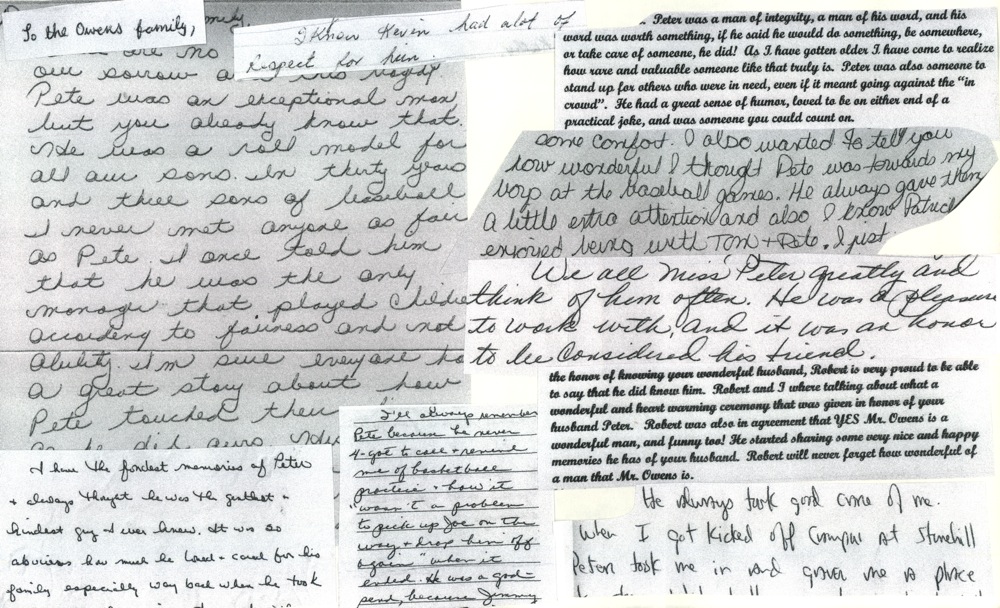 To the Owens family,
family,
are no
our sorrow a this tragdy
Pete was an exceptional man
but you already know that.
He was a roll model for
all our sons. In thirty years
and three sons of baseball
I never met anyone as fair
as Pete. I once told him
that he was the only
manager that played Childre
according to fairness and not
ability. I'm sure everyone ha
a great story about how
Pete touched their
as he did ours.
I know Kevin had alot of
respect for him
Peter was a man of integrity, a man of his word, and his
word was worth something, if he said he would do something, be somewhere,
or take care of someone, he did! As I have gotten older I have come to realize
how rare and valuable someone like that truly is. Peter was also someone to
stand up for others who were in need, even if it meant going against the "in
crowd". He had a great sense of humor, loved to be on either end of a
practical joke, and was someone you could count on.
some comfort. I also wanted to tell you
how wonderful I thought Pete was towards my
boys at the baseball games. He always gave them
a little extra attention and also I know Patrick
enjoyed being with Tom + Pete. I just
We all miss Peter greatly and
think of him often. He was a pleasure
to work with, and it was an honor
to be considered his friend.
the honor of knowing your wonderful husband, Robert is very proud to be able
to say that he did know him. Robert and I where talking about what a
wonderful and heart warming ceremony that was given in honor of your
husband Peter. Robert was also in agreement that YES Mr. Owens is a
wonderful man, and funny too! He started sharing some very nice and happy
memories he has of your husband. Robert will never forget how wonderful of
a man that Mr. Owens is.
I have the fondest memories of Peter
+ always thought he was the greatest +
kindest guy I ever knew. It was so
obvious how much he loved + cared for his
family especially way back when he took
I'll always remember
Pete because he never
4-got to call + remind
me of basketball
practice + how it
"wasn't a problem
to pick up Joe on the
way + drop him off
again" when it
ended. He was a god-
send, because Jimmy
He always took good care of me.
When I got kicked off campus at Stonehill
Peter took me in and gave me a place